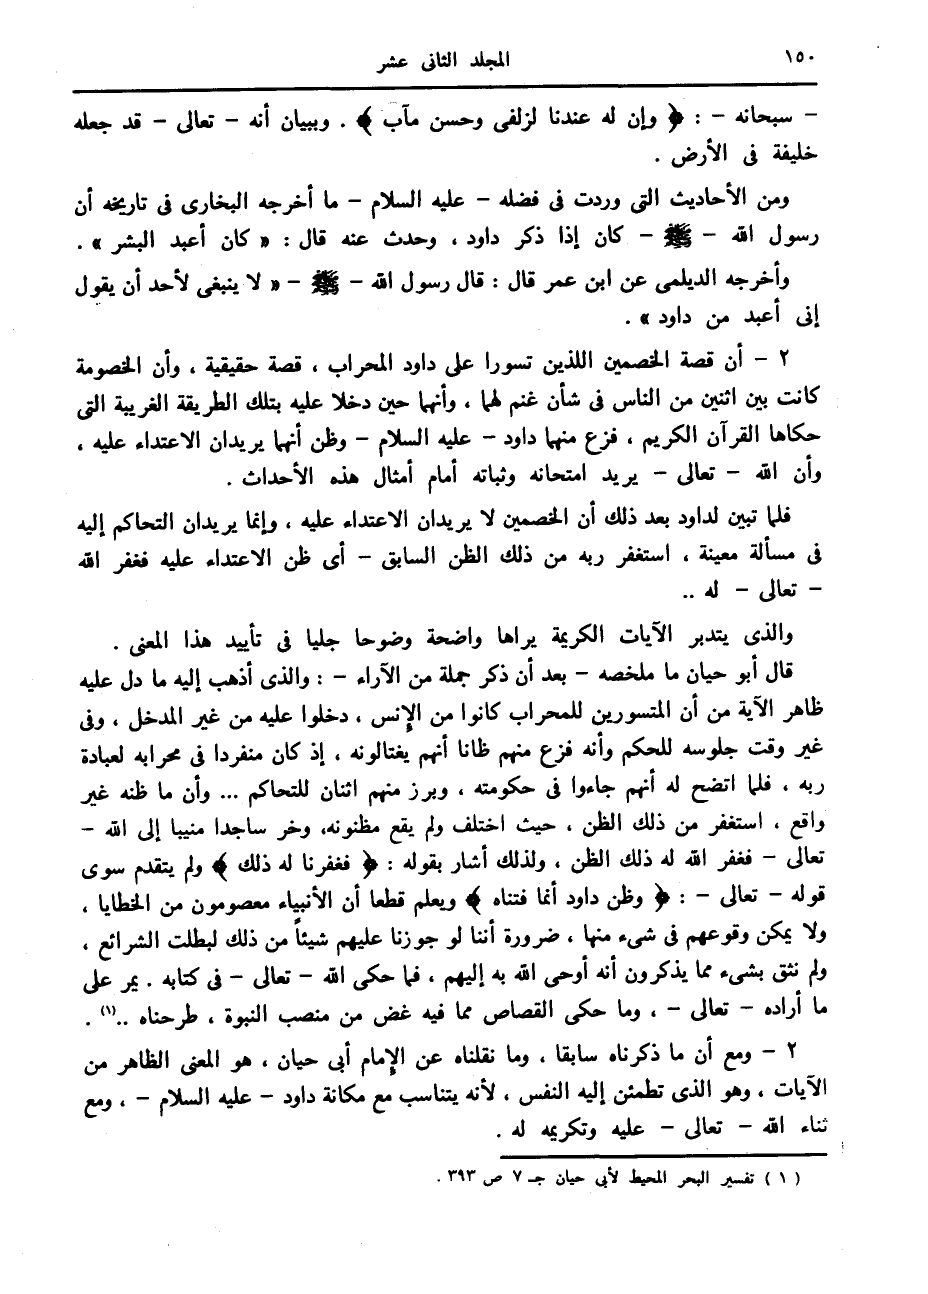 ١٥٠ المجلد الثانى عشر
– سبحانه – : ﴿ وإن له عندنا لزلفى وحسن مآب ﴾ . وببيان أنه – تعالى – قد جعله
خليفة فى الأرض .
ومن الأحاديث التى وردت فى فضله – عليه السلام – ما أخرجه البخارى فى تاريخه أن
رسول الله – ﷺ – كان إذا ذكر داود ، وحدث عنه قال : « كان أعبد البشر » .
وأخرجه الديلمى عن ابن عمر قال : قال رسول الله – ﷺ – « لا ينبغى لأحد أن يقول
إنى أعبد من داود » .
٢ – أن قصة الخصمين اللذين تسورا على داود المحراب ، قصة حقيقية ، وأن الخصومة
كانت بين اثنين من الناس فى شأن غنم لهما ، وأنهما حين دخلا عليه بتلك الطريقة الغريبة التى
حكاها القرآن الكريم ، فزع منهما داود – عليه السلام – وظن أنهما يريدان الاعتداء عليه ،
وأن الله – تعالى – يريد امتحانه وثباته أمام أمثال هذه الأحداث .
فلما تبين لداود بعد ذلك أن الخصمين لا يريدان الاعتداء عليه ، وإنما يريدان التحاكم إليه
فى مسألة معينة ، استغفر ربه من ذلك الظن السابق – أى ظن الاعتداء عليه فغفر الله
– تعالى – له ..
والذى يتدبر الآيات الكريمة يراها واضحة وضوحا جليا فى تأييد هذا المعنى .
قال أبو حيان ما ملخصه – بعد أن ذكر جملة من الآراء – : والذى أذهب إليه ما دل عليه
ظاهر الآية من أن المتسورين للمحراب كانوا من الإنس ، دخلوا عليه من غير المدخل ، وفى
غير وقت جلوسه للحكم وأنه فزع منهم ظانا أنهم يغتالونه ، إذ كان منفردا فى محرابه لعبادة
ربه ، فلما اتضح له أنهم جاءوا فى حكومته ، وبرز منهم اثنان للتحاكم ... وأن ما ظنه غير
واقع ، استغفر من ذلك الظن ، حيث اختلف ولم يقع مظنونه، وخر ساجدا منيبا إلى الله –
تعالى – فغفر الله له ذلك الظن ، ولذلك أشار بقوله : ﴿ فغفرنا له ذلك ﴾ ولم يتقدم سوى
قوله – تعالى – : ﴿ وظن داود أنما فتناه ﴾ ويعلم قطعا أن الأنبياء معصومون من الخطايا ،
ولا يمكن وقوعهم فى شىء منها ، ضرورة أننا لو جوزنا عليهم شيئاً من ذلك لبطلت الشرائع ،
ولم نثق بشىء مما يذكرون أنه أوحى الله به إليهم ، فما حكى الله – تعالى – فى كتابه . يمر على
ما أراده – تعالى – ، وما حكى القصاص مما فيه غض من منصب النبوة ، طرحناه ..(١) .
٢ – ومع أن ما ذكرناه سابقا ، وما نقلناه عن الإمام أبى حيان ، هو المعنى الظاهر من
الآيات ، وهو الذى تطمئن إليه النفس ، لأنه يتناسب مع مكانة داود – عليه السلام – ، ومع
ثناء الله – تعالى – عليه وتكريمه له .
( ١ ) تفسير البحر المحيط لأبى حيان جـ ٧ ص ٣٩٣ .